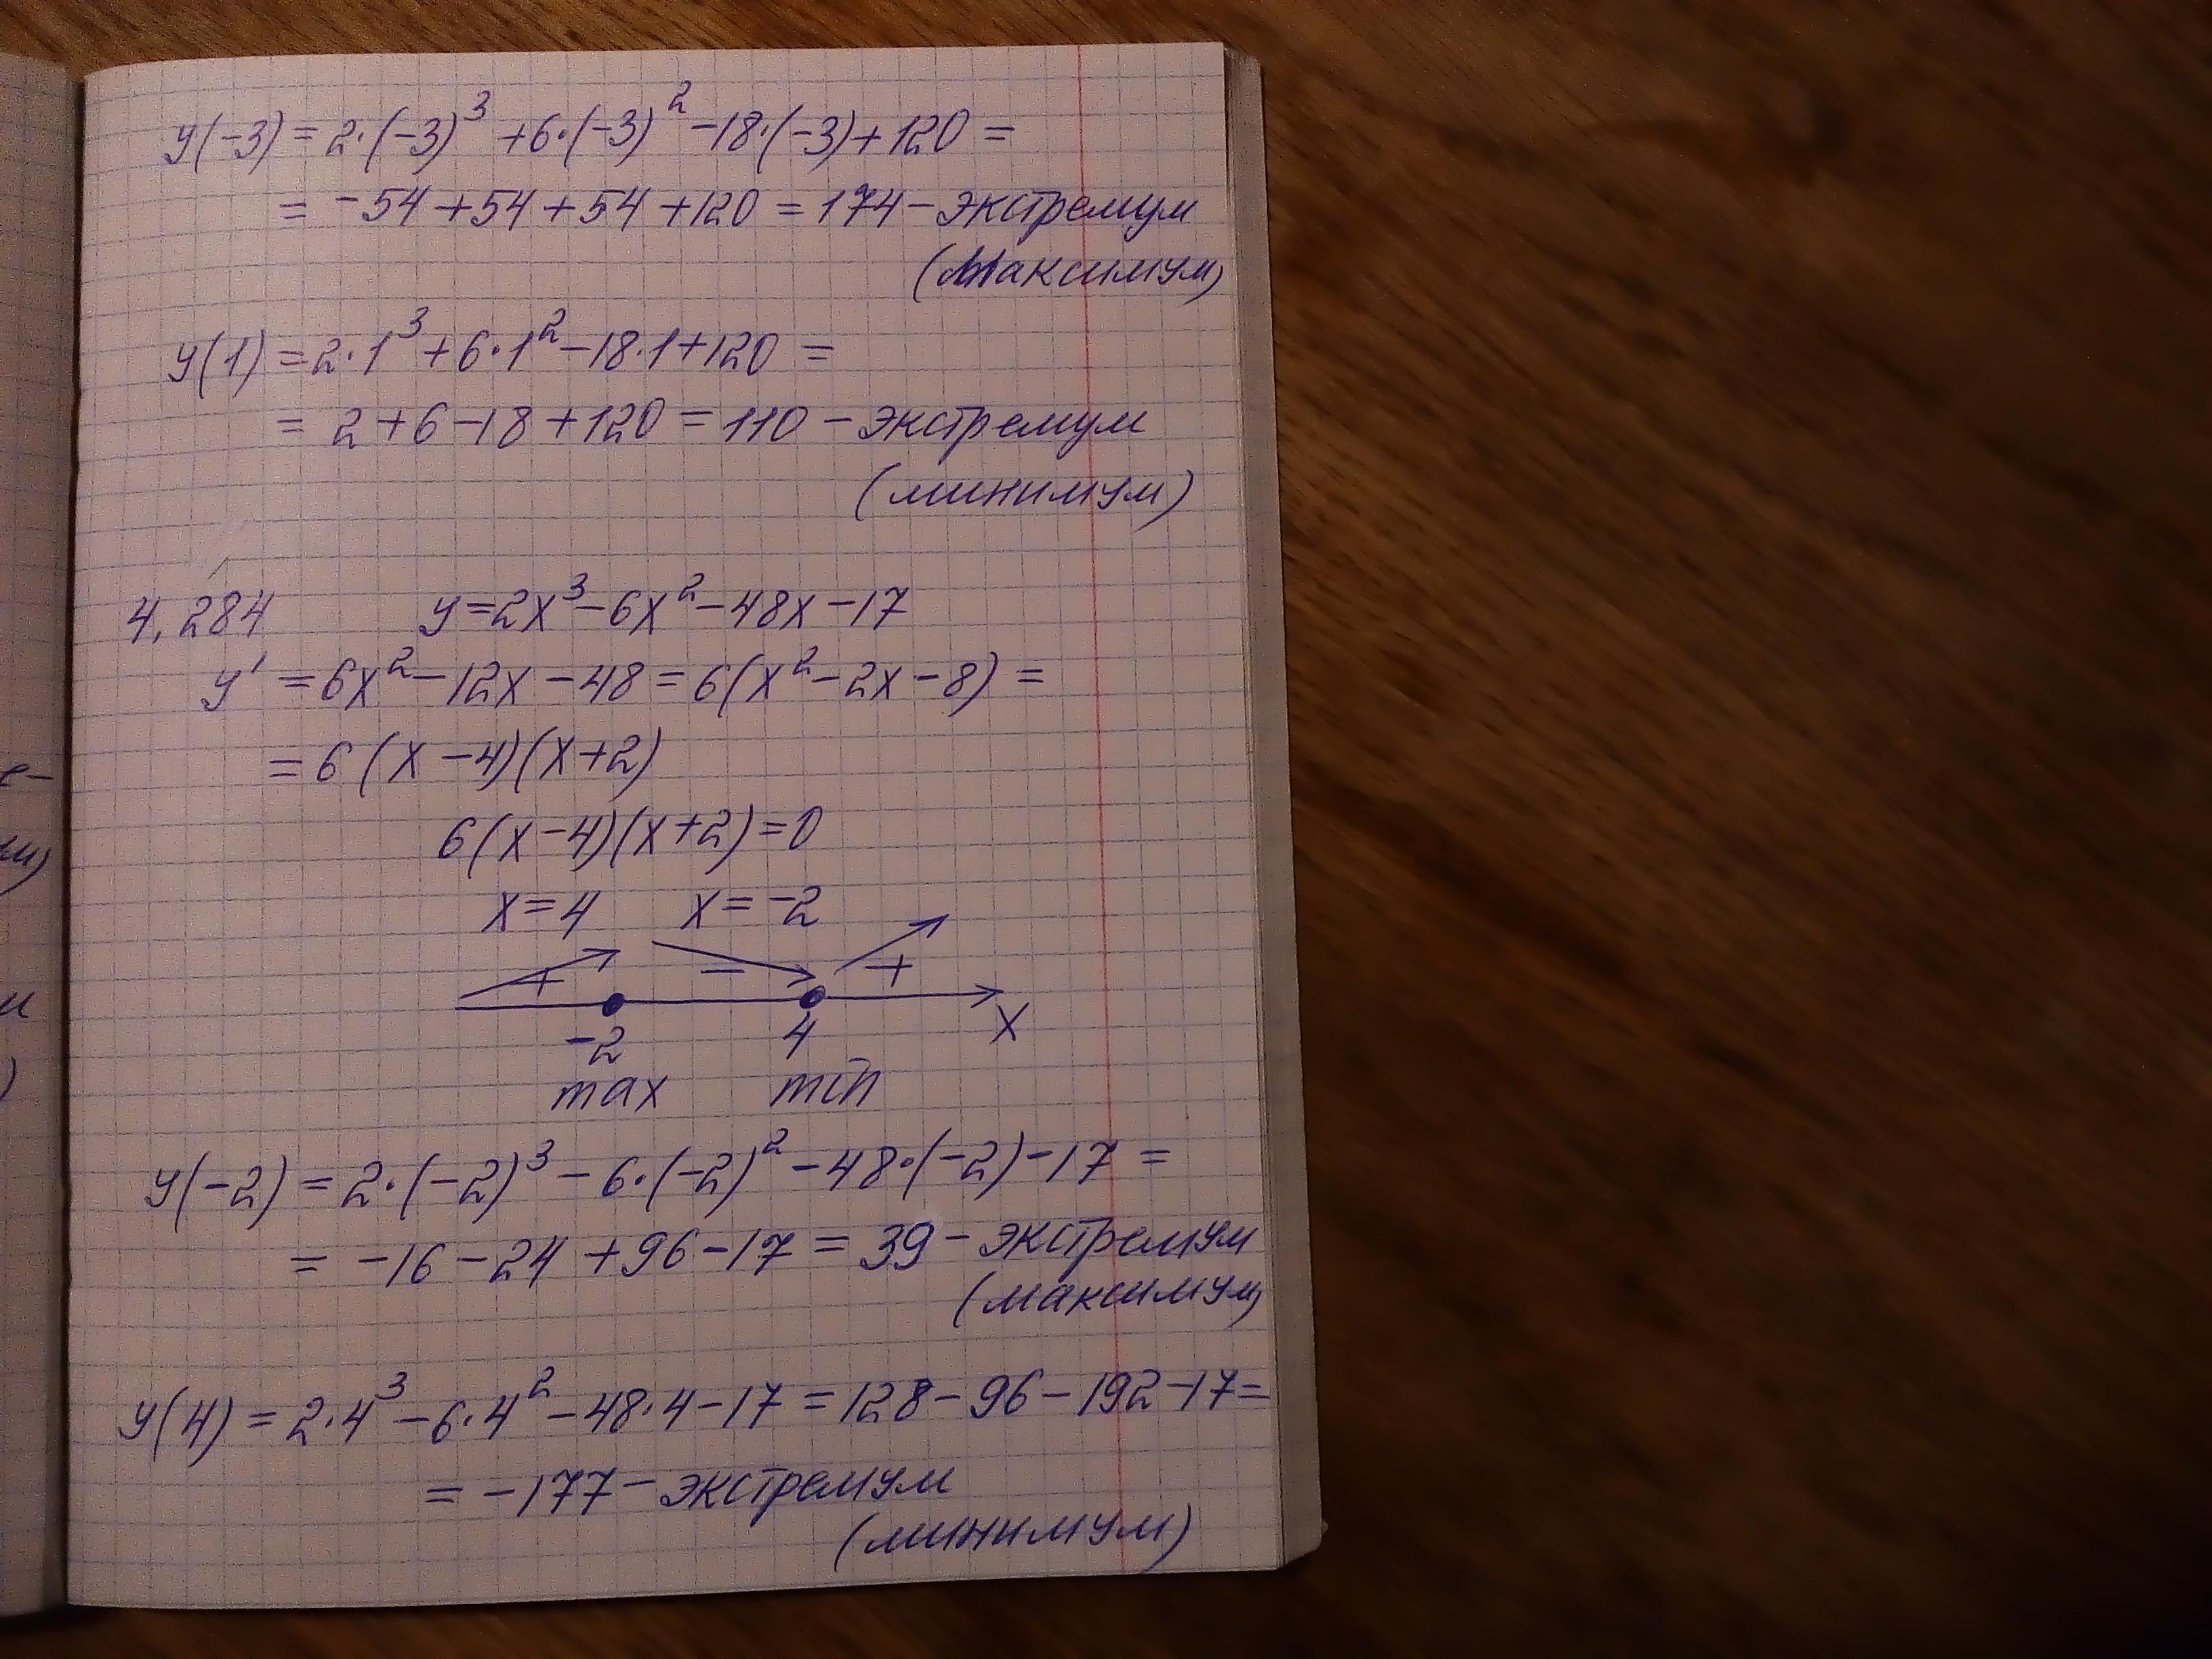 y(-3) = 2·(-3)³ + 6·(-3)² - 18·(-3) + 120 =
= -54 + 54 + 54 + 120 = 174 - экстремум
(максимум)
y(1) = 2·1³ + 6·1² - 18·1 + 120 =
= 2 + 6 - 18 + 120 = 110 - экстремум
(минимум)
4.284 y = 2x³ - 6x² - 48x - 17
y' = 6x² - 12x - 48 = 6(x² - 2x - 8) =
= 6(x - 4)(x + 2)
6(x - 4)(x + 2) = 0
x = 4 x = -2
+ - +
-2 4 x
max min
y(-2) = 2·(-2)³ - 6·(-2)² - 48·(-2) - 17 =
= -16 - 24 + 96 - 17 = 39 - экстремум
(максимум)
y(4) = 2·4³ - 6·4² - 48·4 - 17 = 128 - 96 - 192 - 17 =
= -177 - экстремум
(минимум)